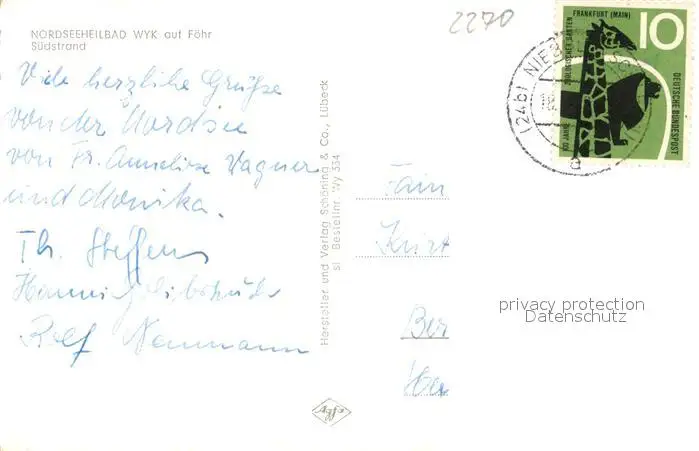 2270
NORDSEEHEILBAD WYK auf Föhr
Südstrand
Viele herzliche Grüße
von der Nordsee
von Fr. Annelise Wagner
und Monika.
Th. Steffens
Rolf Neumann
Hersteller und Verlag Schöning & Co., Lübeck
sl Bestellnr. Wy 334
Agfa
(24b) NIEB
a
100 JAHRE ZOOLOGISCHER GARTEN FRANKFURT (MAIN)
10
DEUTSCHE BUNDESPOST
Fam
Kurt
Ber
privacy protection
Datenschutz